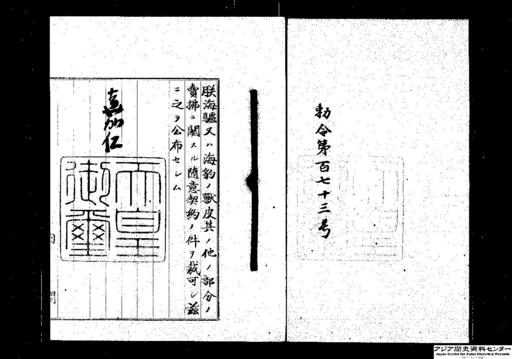 勅令第百七十三号
朕海驢又ハ海豹ノ獣皮其ノ他ノ部分ノ
賣拂ニ關スル随意契約ノ件ヲ裁可シ茲
ニ之ヲ公布セシム
嘉仁
天皇
御璽
アジア歴史資料センター
Japan Center for Asian Historical Records